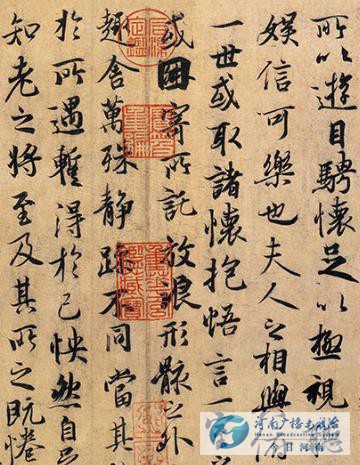 所以遊目騁懷足以極視
娛信可樂也夫人之相與
一世或取諸懷抱悟言一
或因寄所託放浪形骸之外
趣舍萬殊靜躁不同當其
於所遇蹔得於己怏然自足
知老之將至及其所之既惓
河南广播电视台
Henan Broadcasting System
今日河南